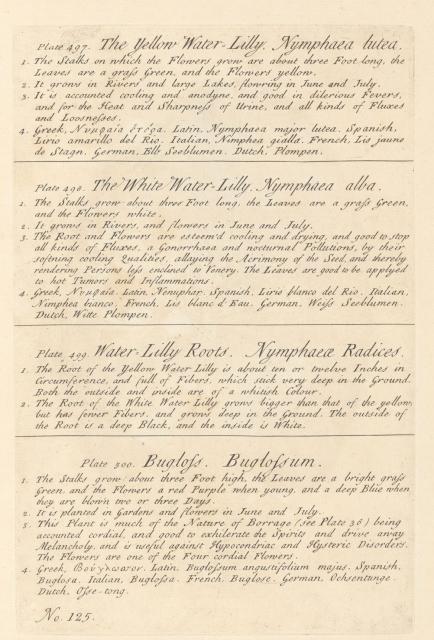 Plate 497. The Yellow Water-Lilly. Nymphaea lutea.
1. The Stalks on which the Flowers grow are about three Foot long, the
Leaves are a graſs Green, and the Flowers yellow.
2. It grows in Rivers and large Lakes, flowring in June and July.
3. It is accounted cooling and anodyne, and good in dilerious Fevers,
and for the Heat and Sharpneſs of Urine, and all kinds of Fluxes
and Looſneſses.
4. Greek, Νυμφαία Latin, Nymphaea major lutea. Spanish,
Lirio amarillo del Rio. Italian, Nimphea gialla. French, Lis jaune
de Stagn. German, Elb Seeblumen. Dutch, Plompen.
Plate 498. The White Water-Lilly. Nymphaea alba.
1. The Stalks grow about three Foot long, the Leaves are a graſs Green,
and the Flowers white.
2. It grows in Rivers, and flowers in June and July.
3. The Root and Flowers are esteem'd cooling and drying, and good to stop
all kinds of Fluxes, a Gonorrhaea and nocturnal Pollutions, by their
softning cooling Qualities, allaying the Acrimony of the Seed, and thereby
rendering Persons leſs enclined to Venery. The Leaves are good to be applyed
to hot Tumors and Inflammations.
4. Greek, Νυμφαία. Latin, Nenuphar. Spanish, Lirio blanco del Rio. Italian,
Nimphea bianco. French, Lis blanc d'Eau. German, Weiſs Seeblumen.
Dutch, Witte Plompen.
Plate 499. Water-Lilly Roots. Nymphaeæ Radices.
1. The Root of the Yellow Water Lilly is about ten or twelve Inches in
Circumference, and full of Fibers, which stick very deep in the Ground.
Both the outside and inside are of a whitish Colour.
2. The Root of the White Water Lilly grows bigger than that of the yellow,
but has fewer Fibers, and grows deep in the Ground. The outside of
the Root is a deep Black, and the inside is White.
Plate 500. Bugloſs. Bugloſsum.
1. The Stalks grow about three Foot high, the Leaves are a bright graſs
Green, and the Flowers a red Purple when young, and a deep Blue when
they are blown two or three Days.
2. It is planted in Gardens and flowers in June and July.
3. This Plant is much of the Nature of Borrage (see Plate 36) being
accounted cordial, and good to exhilerate the Spirits and drive away
Melancholy, and is useful against Hypocondriac and Hysteric Disorders.
The Flowers are one of the Four cordial Flowers.
4. Greek, Βούγλωσσον. Latin, Bugloſsum angustifolium majus. Spanish,
Buglosa. Italian, Bugloſsa. French, Buglose. German, Ochsentunge.
Dutch, Oſse-tong.
No. 125.